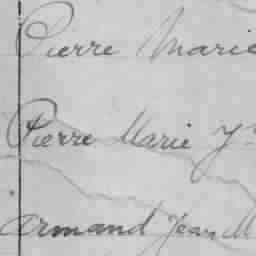 Pierre Marie
Pierre Marie Y
Armand Jean M